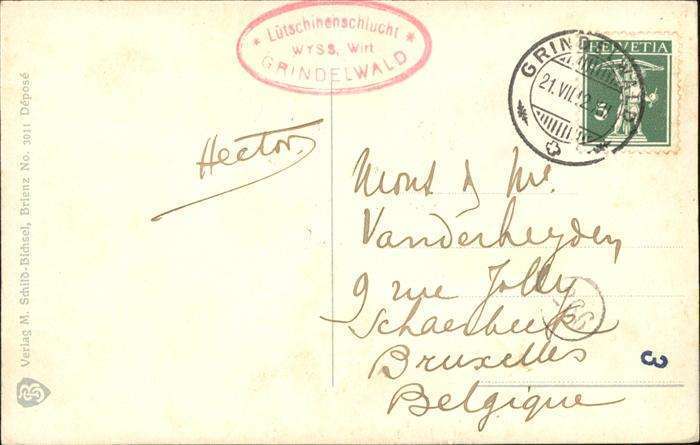 Lütschinenschlucht
WYSS, Wirt
GRINDELWALD
GRINDELWALD
21.VII.12
HELVETIA
5
Hector.
Mont & Me.
Vanderheyden
9 rue Jolly
Schaerbeek
Bruxelles
Belgique
3
Verlag M. Schild-Bichsel, Brienz No. 3011 Déposé